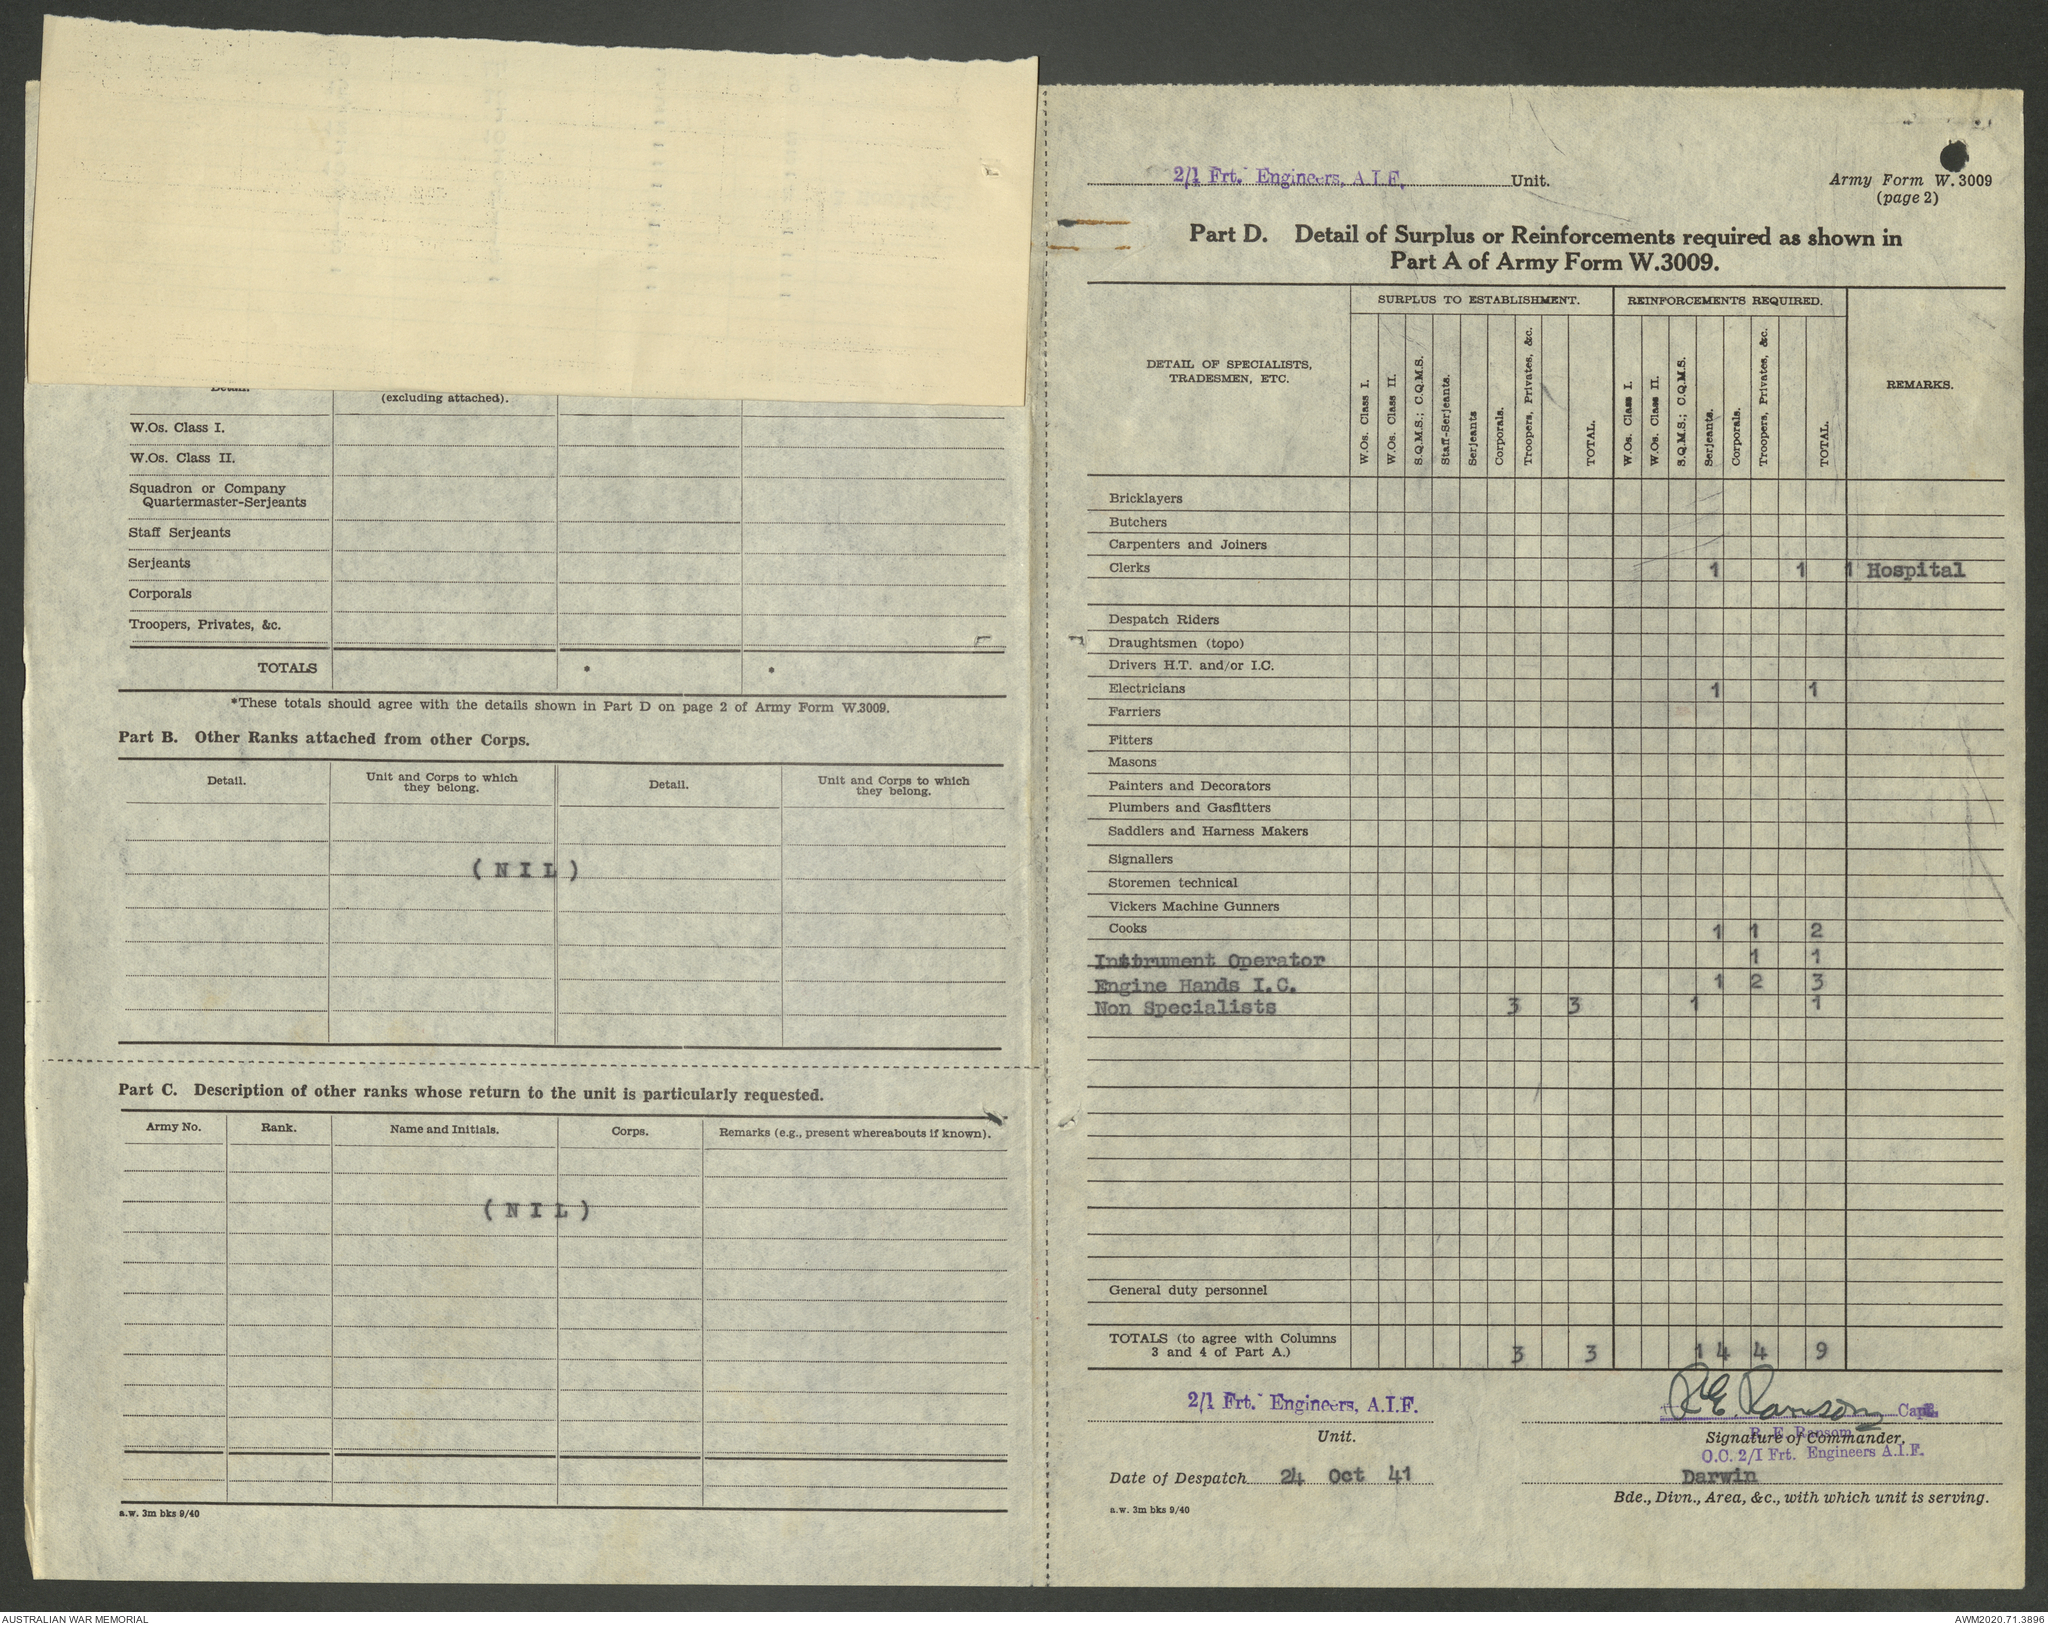 Detail.
(excluding attached).
W.Os. Class I.
W.Os. Class II.
Squadron or Company
Quartermaster-Serjeants
Staff Serjeants
Serjeants
Corporals
Troopers, Privates, &c.
TOTALS * *
*These totals should agree with the details shown in Part D on page 2 of Army Form W.3009.
Part B. Other Ranks attached from other Corps.
Detail. Unit and Corps to which they belong. Detail. Unit and Corps to which they belong.
( N I L )
Part C. Description of other ranks whose return to the unit is particularly requested.
Army No. Rank. Name and Initials. Corps. Remarks (e.g., present whereabouts if known).
( N I L )
a.w. 3m bks 9/40
2/1 Frt. Engineers, A.I.F. Unit.
Army Form W. 3009
(page 2)
Part D. Detail of Surplus or Reinforcements required as shown in
Part A of Army Form W.3009.
DETAIL OF SPECIALISTS,
TRADESMEN, ETC.
SURPLUS TO ESTABLISHMENT.
W.Os. Class I.
W.Os. Class II.
S.Q.M.S.; C.Q.M.S.
Staff-Serjeants.
Serjeants
Corporals.
Troopers, Privates, &c.
TOTAL.
REINFORCEMENTS REQUIRED.
W.Os. Class I.
W.Os. Class II.
S.Q.M.S.; C.Q.M.S.
Serjeants.
Corporals.
Troopers, Privates, &c.
TOTAL.
REMARKS.
Bricklayers
Butchers
Carpenters and Joiners
Clerks 1 1 1 Hospital
Despatch Riders
Draughtsmen (topo)
Drivers H.T. and/or I.C.
Electricians 1 1
Farriers
Fitters
Masons
Painters and Decorators
Plumbers and Gasfitters
Saddlers and Harness Makers
Signallers
Storemen technical
Vickers Machine Gunners
Cooks 1 1 2
Instrument Operator 1 1
Engine Hands I.C. 1 2 3
Non Specialists 3 3 1 1
General duty personnel
TOTALS (to agree with Columns
3 and 4 of Part A.) 3 3 1 4 4 9
2/1 Frt. Engineers, A.I.F.
Unit.
Date of Despatch 24 Oct 41
a.w. 3m bks 9/40
R E Ransom Capt.
R. E. Ransom
Signature of Commander,
O.C. 2/1 Frt. Engineers A.I.F.
Darwin
Bde., Divn., Area, &c., with which unit is serving.
AUSTRALIAN WAR MEMORIAL
AWM2020.71.3896